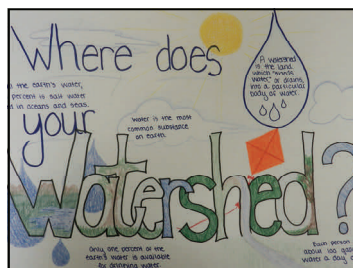 Where does
your
Watershed?
the earth's water,
percent is salt water
in oceans and seas.
Water is the most
common substance
on earth.
A watershed
is the land
which
water," or drains,
into a particular
body of water.
Only one percent of the
Earth's water is available
for drinking water.
Each person
about 100 gal
water a day